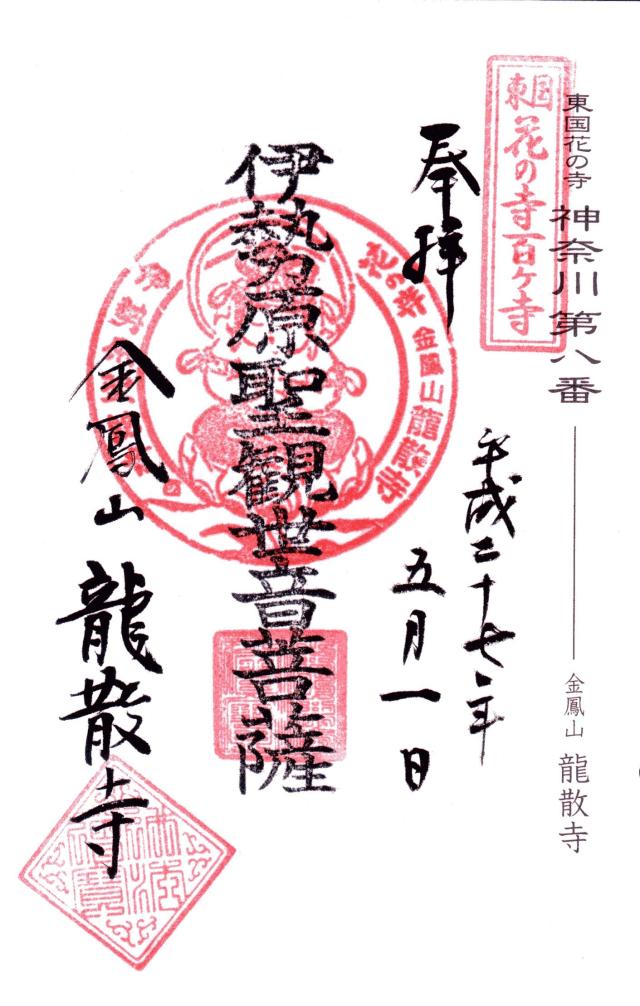 東国花の寺 神奈川第八番
金鳳山 龍散寺
東国
花の寺百ヶ寺
奉拝
平成二十七年
五月一日
花の寺 金鳳山 龍散寺
伊勢原聖観世音菩薩
金鳳山 龍散寺